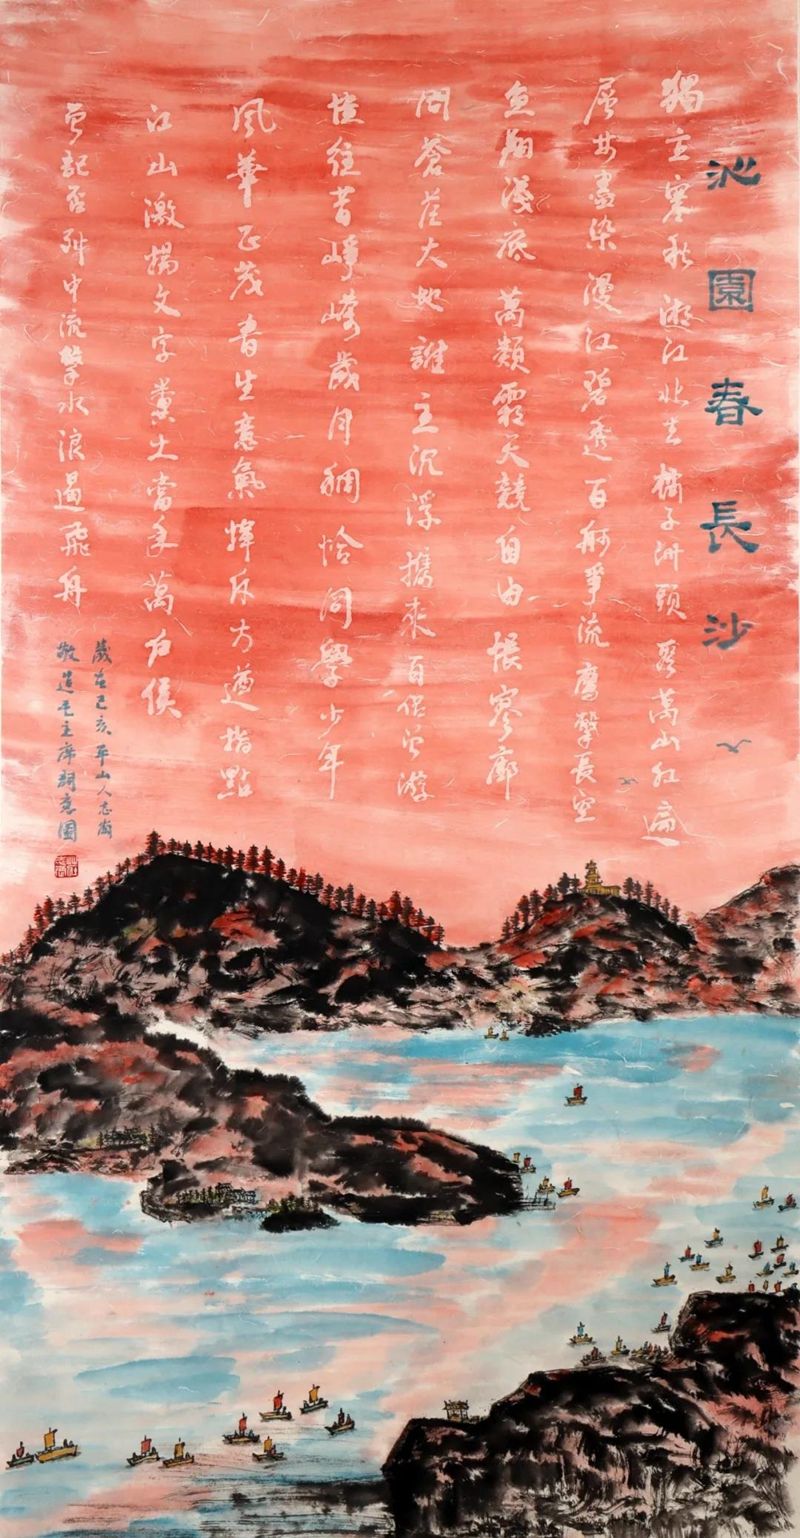 沁園春長沙
獨立寒秋湘江北去橘子洲頭看萬山紅遍
層林盡染漫江碧透百舸爭流鷹擊長空
魚翔淺底萬類霜天競自由悵寥廓
問蒼茫大地誰主沉浮攜來百侶曾游
憶往昔崢嶸歲月稠恰同學少年
風華正茂書生意氣揮斥方遒指點
江山激揚文字糞土當年萬户侯
曾記否到中流擊水浪遏飛舟
歲在己亥平山人志
敬造毛主席詞意圖